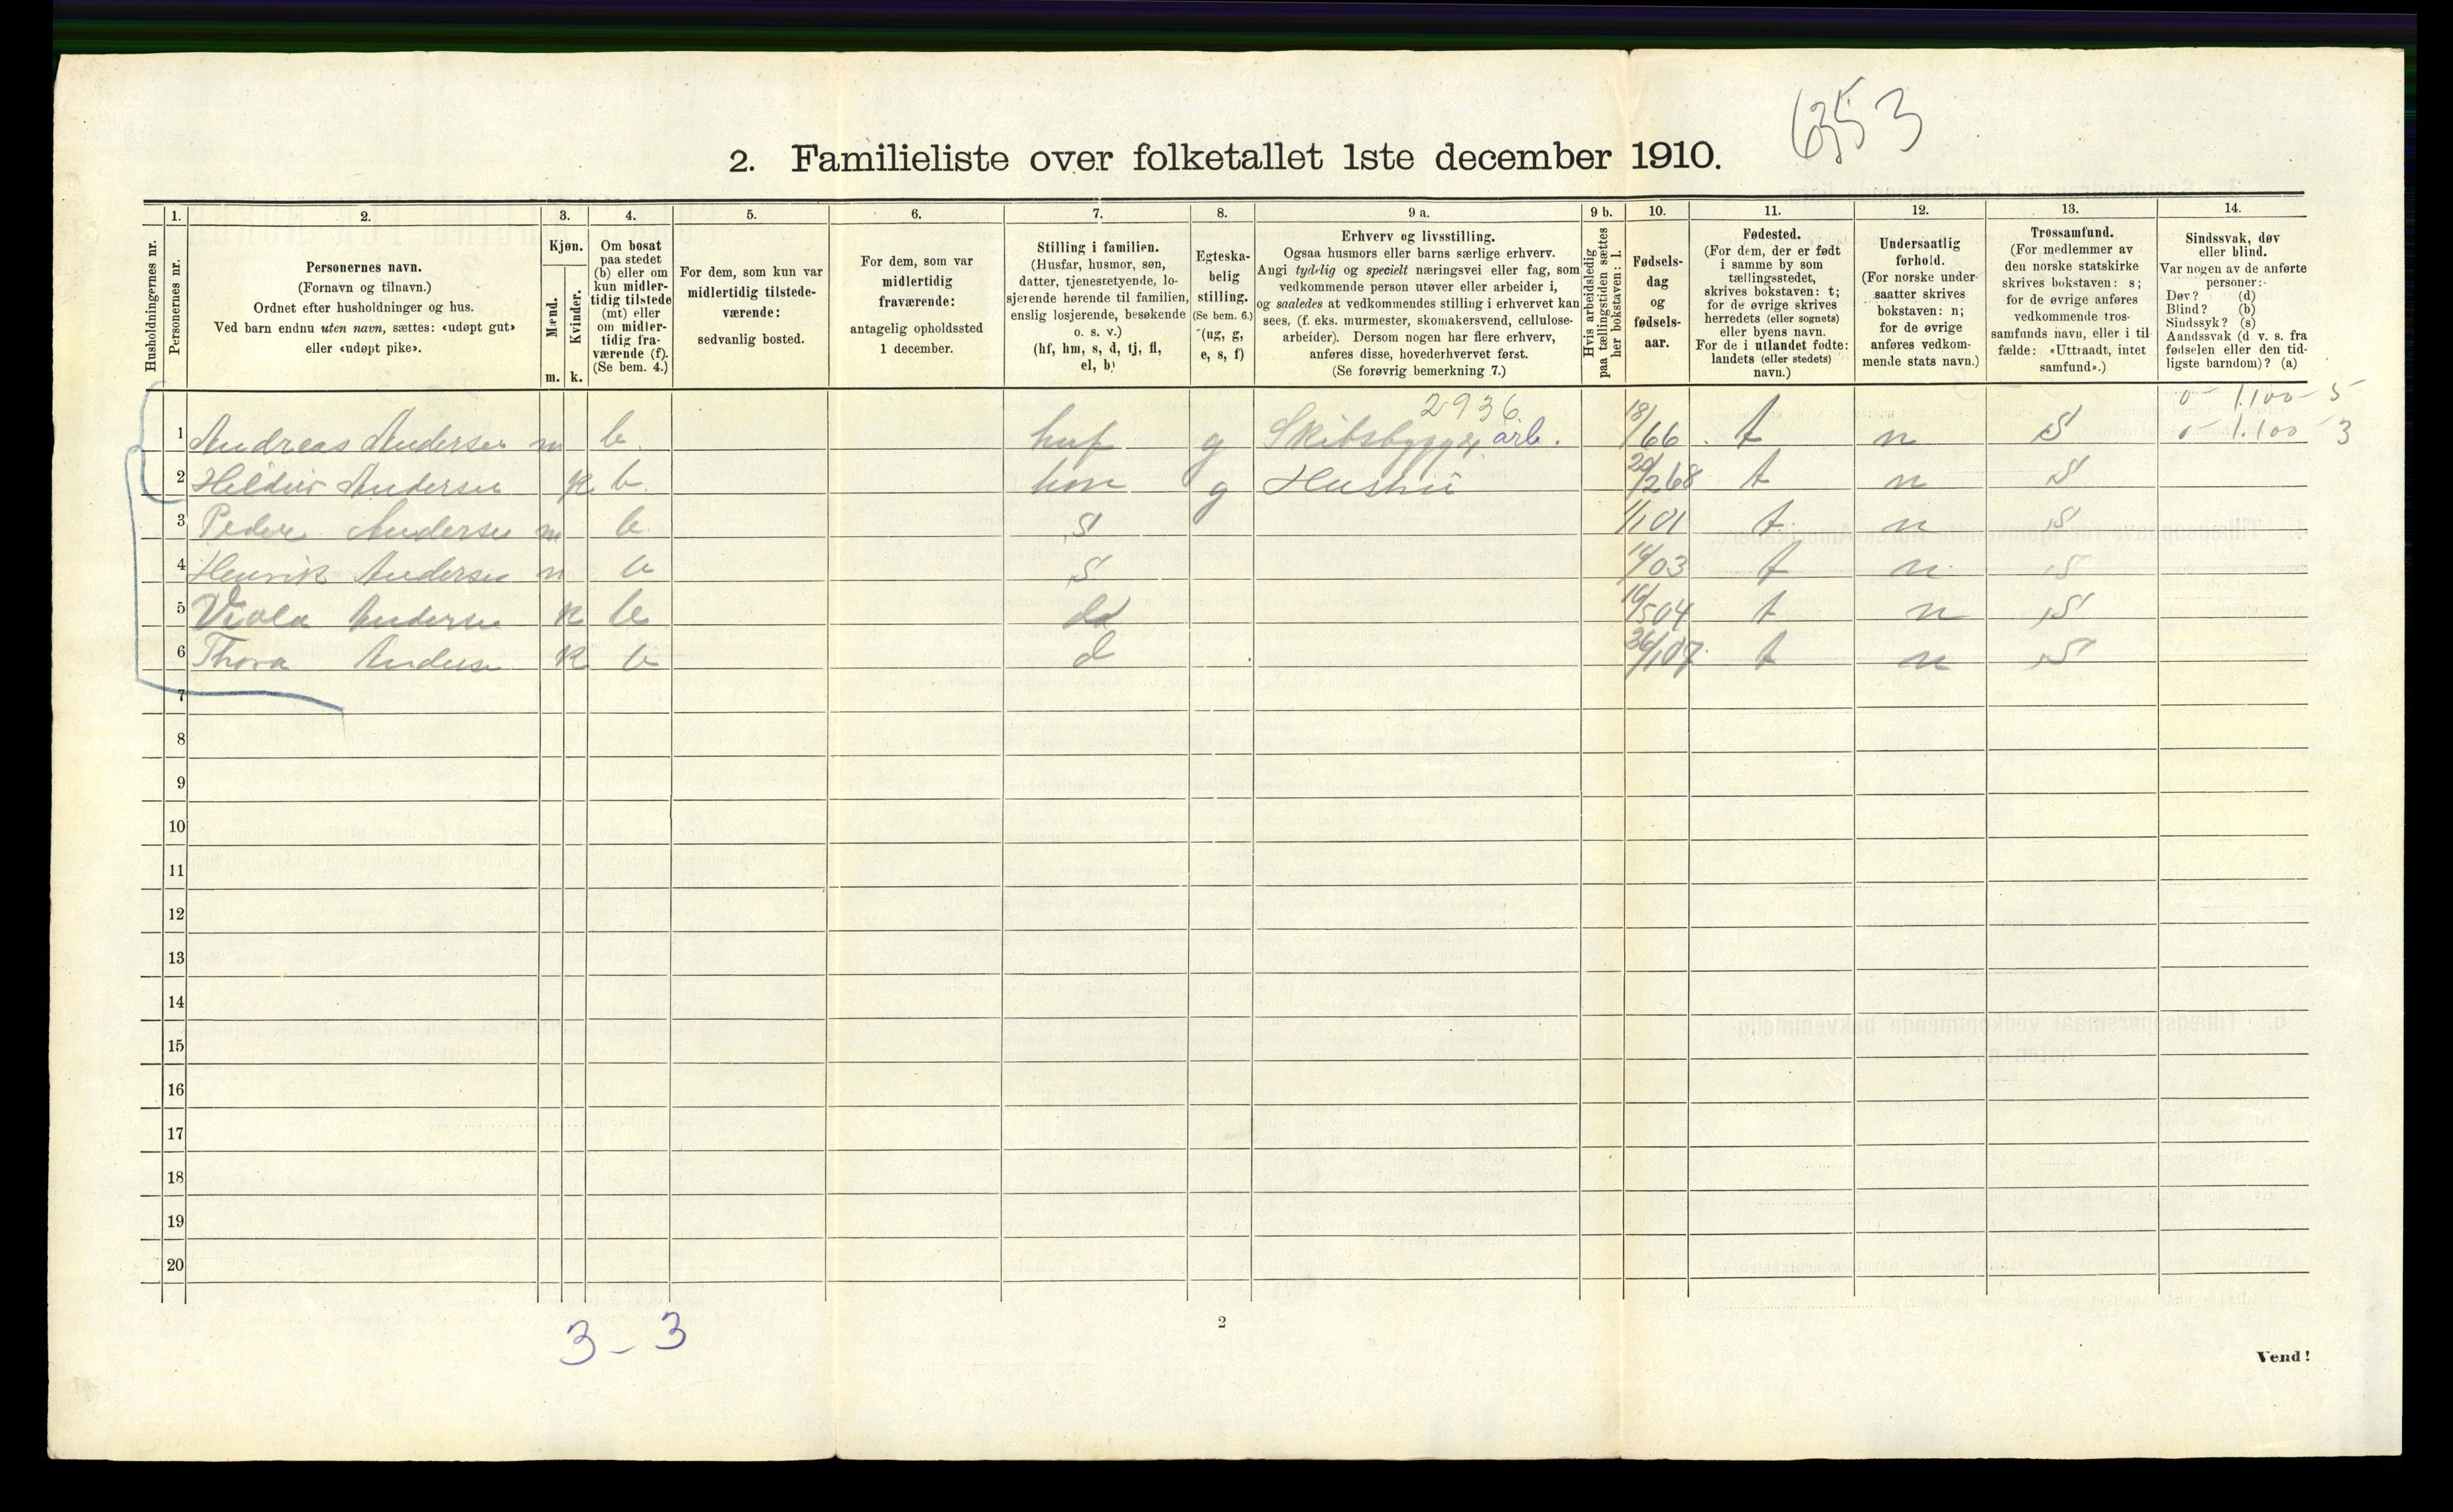 6353
2. Familieliste over folketallet 1ste december 1910.
Husholdningernes nr.
1. Personernes nr.
2. Personernes navn. (Fornavn og tilnavn.) Ordnet efter husholdninger og hus. Ved barn endnu uten navn, sættes: «udøpt gut» eller «udøpt pike».
3. Kjøn. Mænd. m. Kvinder. k.
4. Om bosat paa stedet (b) eller om kun midler- tidig tilstede (mt) eller om midler- tidig fra- værende (f). (Se bem. 4.)
5. For dem, som kun var midlertidig tilstede- værende: sedvanlig bosted.
6. For dem, som var midlertidig fraværende: antagelig opholdssted 1 december.
7. Stilling i familien. (Husfar, husmor, søn, datter, tjenesretyende, lo- sjerende hørende til familien, enslig losjerende, besøkende o. s. v.) (hf, hm, s, d, tj, fl, el, b)
8. Egteska- belig stilling. (Se bem. 6.) (ug, g, e, s, f)
9 a. Erhverv og livsstilling. Ogsaa husmors eller barns særlige erhverv. Angi tydelig og specielt næringsvei eller fag, som vedkommende person utøver eller arbeider i, og saaledes at vedkommendes stilling i erhvervet kan sees, (f. eks. murmester, skomakersvend, cellulose- arbeider). Dersom nogen har flere erhverv, anføres disse, hovederhvervet først. (Se forøvrig bemerkning 7.)
9 b. Hvis arbeidsledig paa tællingstiden sættes her bokstaven: l.
10. Fødsels- dag og fødsels- aar.
11. Fødested. (For dem, der er født i samme by som tællingsstedet, skrives bokstaven: t; for de øvrige skrives herredets (eller sognets) eller byens navn. For de i utlandet fødte: landets (eller stedets) navn.)
12. Undersaatlig forhold. (For norske under- saatter skrives bokstaven: n; for de øvrige anføres vedkom- mende stats navn.)
13. Trossamfund. (For medlemmer av den norske statskirke skrives bokstaven: s; for de øvrige anføres vedkommende tros- samfunds navn, eller i til- fælde: «Uttraadt, intet samfund».)
14. Sindssvak, døv eller blind. Var nogen av de anførte personer: Døv? (d) Blind? (b) Sindssyk? (s) Aandssvak (d. v. s. fra fødselen eller den tid- ligste barndom)? (a)
2936 0 - 1.100 - 5
1 Andreas Andersen m b. huf g Skibsbygger arb. t n S 1.100 3
2 Hildur Andersen k b. hm g Hustru 20/2 68 t n S
3 Peder Andersen m b. S 1/1 01 t n S
4 Henrik Andersen m b S t n S
5 Viola Andersen k b d 16/5 04 t n S
6 Thora Andersen k b d t n S
7
8
9
10
11
12
13
14
15
16
17
18
19
20
3 - 3
2
Vend!